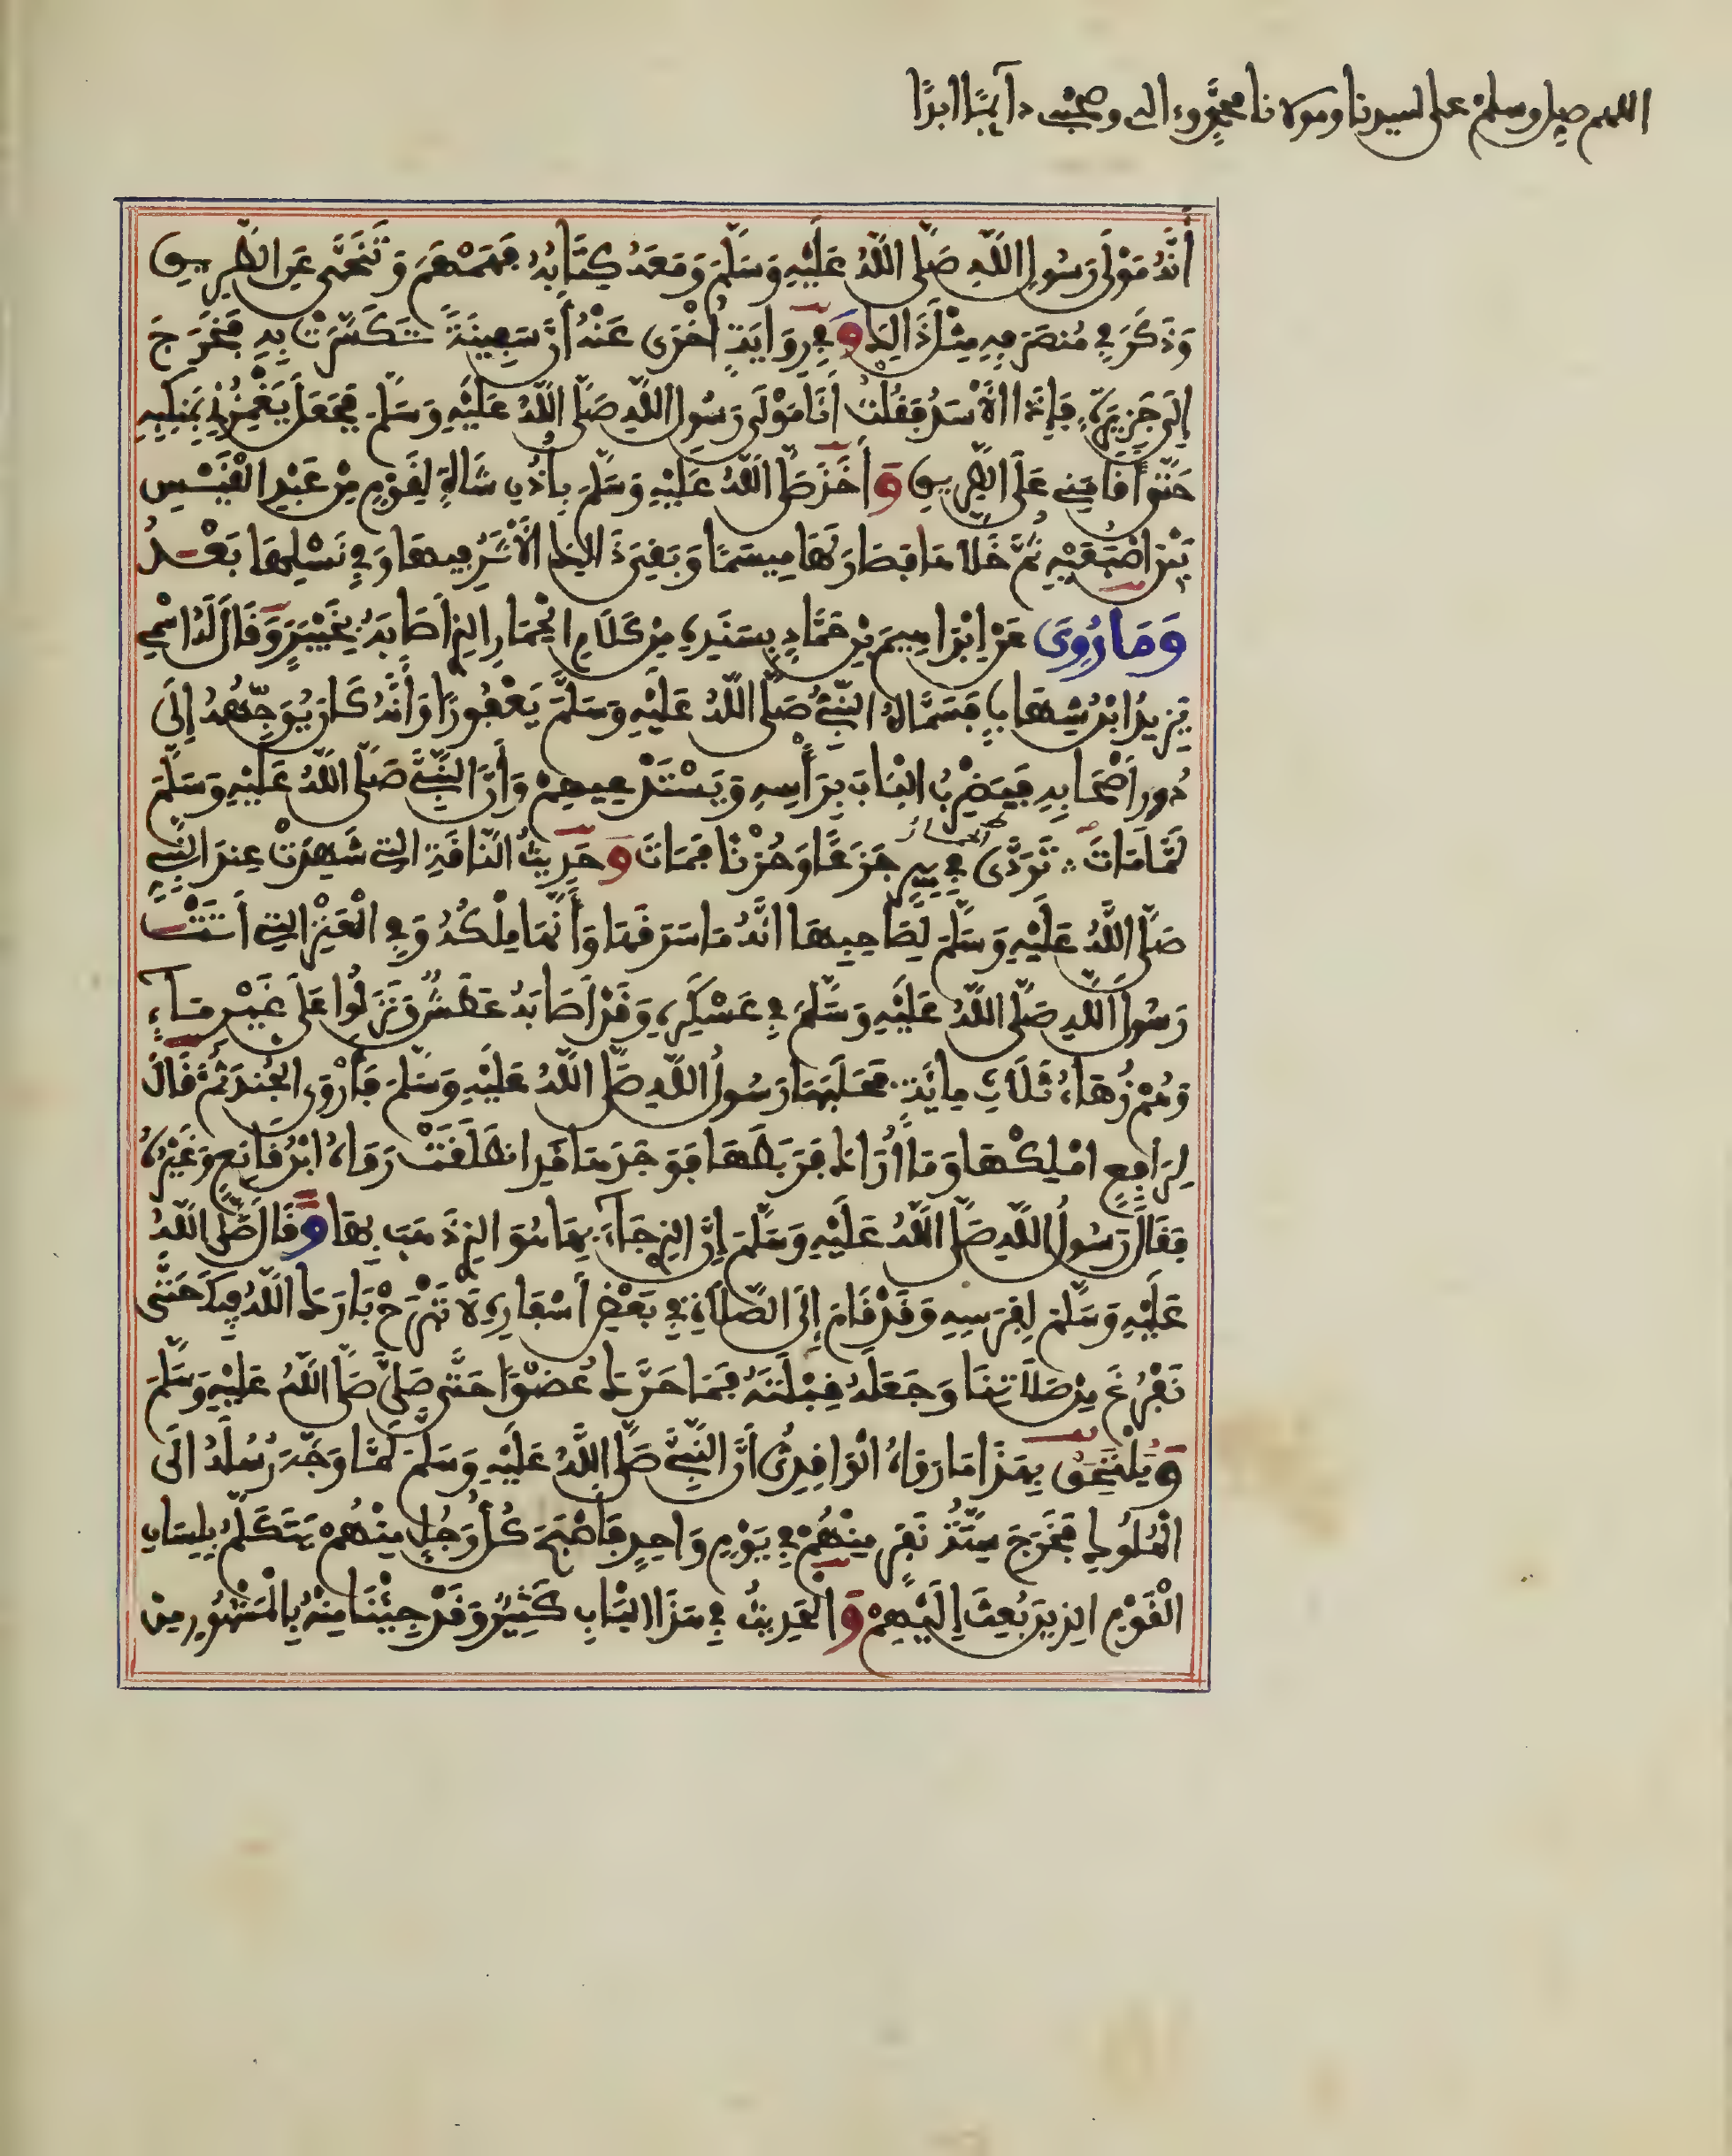 اللهم صل وسلم على سيدنا ومولانا محمد وءاله وصحبه دآئما ابدا
أَنَّهُ مَوْلَى رَسُولِ اللَّهِ صَلَّى اللَّهُ عَلَيْهِ وَسَلَّمَ وَمَعَهُ كِتَابُهُ فَهَمْهَمَ وَتَنَحَّى عَنِ الطَّرِيقِ
وَذَكَرَ فِي مُنصَرَفِهِ مِثْلَ ذَالِكَ وَفِي رِوَايَةٍ اُخْرَى عَنْهُ أَنَّ سَفِينَةً تَكَسَّرَتْ بِهِ فَخَرَجَ
إِلَى جَزِيرَةٍ فَإِذَا الأَسَدُ فَقُلْتُ أَنَا مَوْلَى رَسُولِ اللَّهِ صَلَّى اللَّهُ عَلَيْهِ وَسَلَّمَ فَجَعَلَ يَغْمِزُنِي بِمَنكِبِهِ
حَتَّى أَقَامَنِي عَلَى الطَّرِيقِ وَأَخَذَ صَلَّى اللَّهُ عَلَيْهِ وَسَلَّمَ بِأُذُنِ شَاةٍ لِقَوْمٍ مِنْ عَبْدِ الْقَيْسِ
بَيْنَ اصْبَعَيْهِ ثُمَّ خَلَّاهَا فَصَارَ لَهَا مِيسَمًا وَبَقِيَ ذَالِكَ الأَثَرُ فِيهَا وَفِي نَسْلِهَا بَعْدُ
وَمَا رُوِيَ عَنِ ابْرَاهِيمَ بْنِ حَمَّادٍ بِسَنَدِهِ مِنْ كَلَامِ الْحِمَارِ الذِي أَصَابَهُ بِخَيْبَرَ وَقَالَ لَهُ اسْمِي
يَزِيدُ ابْنُ شِهَابٍ فَسَمَّاهُ النَّبِيُّ صَلَّى اللَّهُ عَلَيْهِ وَسَلَّمَ يَعْفُورًا وَأَنَّهُ كَانَ يُوَجِّهُهُ إِلَى
دُورِ أَصْحَابِهِ فَيَضْرِبُ الْبَابَ بِرَأْسِهِ وَيَسْتَدْعِيهِمْ وَأَنَّ النَّبِيَّ صَلَّى اللَّهُ عَلَيْهِ وَسَلَّمَ
لَمَّا مَاتَ تَرَدَّى فِي بِيرٍ جَزَعًا وَحُزْنًا فَمَاتَ وَحَدِيثُ النَّاقَةِ التِي شَهِدَتْ عِندَ النَّبِيِّ
صَلَّى اللَّهُ عَلَيْهِ وَسَلَّمَ لِصَاحِبِهَا أَنَّهُ مَا سَرَقَهَا وَأَنَّهَا مِلْكُهُ وَفِي الْعَنْزِ التِي أَتَتْ
رَسُولَ اللَّهِ صَلَّى اللَّهُ عَلَيْهِ وَسَلَّمَ فِي عَسْكَرِهِ وَقَدْ أَصَابَهُ عَطَشٌ وَنَزَلُوا عَلَى غَيْرِ مَاءٍ
وَهُمْ زُهَاءُ ثَلَاثِ مِائَةٍ فَحَلَبَهَا رَسُولُ اللَّهِ صَلَّى اللَّهُ عَلَيْهِ وَسَلَّمَ فَأَرْوَى الْجُندَ ثُمَّ قَالَ
لِرَافِعٍ امْلِكْهَا وَمَا أُرَاكَ فَرَبَطَهَا فَوَجَدَهَا قَدِ انطَلَقَتْ رَوَاهُ ابْنُ قَانِعٍ وَغَيْرُهُ
فَقَالَ رَسُولُ اللَّهِ صَلَّى اللَّهُ عَلَيْهِ وَسَلَّمَ إِنَّ الذِي جَاءَ بِهَا هُوَ الذِي ذَهَبَ بِهَا وَقَالَ صَلَّى اللَّهُ
عَلَيْهِ وَسَلَّمَ لِفَرَسِهِ وَقَدْ قَامَ إِلَى الصَّلَاةِ فِي بَعْضِ أَسْفَارِهِ لَا تَبْرَحْ بَارَكَ اللَّهُ فِيكَ حَتَّى
نَفْرُغَ مِنْ صَلَاتِنَا وَجَعَلَهُ قِبْلَتَهُ فَمَا حَرَّكَ عُضْوًا حَتَّى صَلَّى صَلَّى اللَّهُ عَلَيْهِ وَسَلَّمَ
وَيَلْتَحِقُ بِهَذَا مَا رَوَاهُ الْوَاقِدِيُّ أَنَّ النَّبِيَّ صَلَّى اللَّهُ عَلَيْهِ وَسَلَّمَ لَمَّا وَجَّهَ رُسُلَهُ الَى
الْمُلُوكِ فَخَرَجَ سِتَّةُ نَفَرٍ مِنْهُمْ فِي يَوْمٍ وَاحِدٍ فَأَصْبَحَ كُلُّ رَجُلٍ مِنْهُمْ يَتَكَلَّمُ بِلِسَانِ
الْقَوْمِ الذِينَ بُعِثَ إِلَيْهِمْ وَالْحَدِيثُ فِي هَذَا الْبَابِ كَثِيرٌ وَقَدْ جِئْنَا مِنْهُ بِالْمَشْهُورِ مِنْ